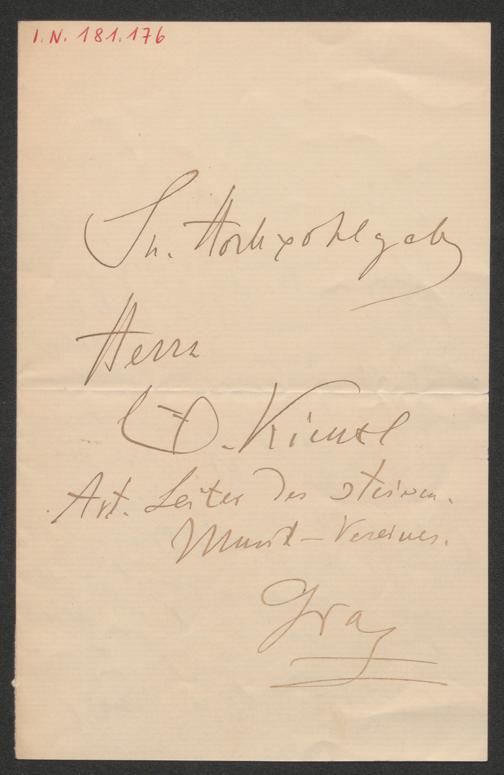 I.N. 181.176
Sr. Hochwohlgeb
Herrn
D. Kienzl
Art. Leiter des steierm.
Musik-Vereines.
Graz